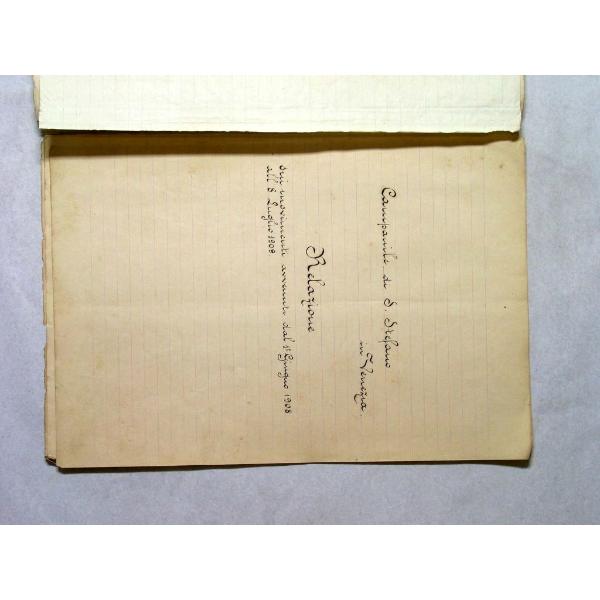 Campanile di S. Stefano
in Venezia.
Relazione
sui movimenti avvenuti dal 1° Giugno 1908
all' 8 Luglio 1908